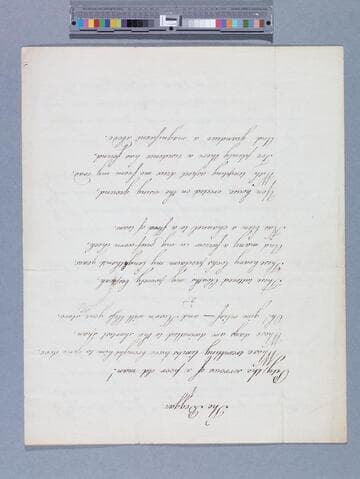 The Beggar
Pity the sorrows of a poor old man!
Whose trembling limbs have brought him to your door,
Whose days are dwindled to the shortest span.
Oh, give relief — and Heaven will bless your store.
These tattered clothes my poverty bespeak,
These hoary locks proclaim my lengthened years;
And many a furrow in my grief-worn cheek,
Has been a channel to a flood of tears.
Yon house, erected on the rising ground,
With tempting aspect drew me from my road,
For plenty there a residence has found,
And grandeur a magnificent abode.